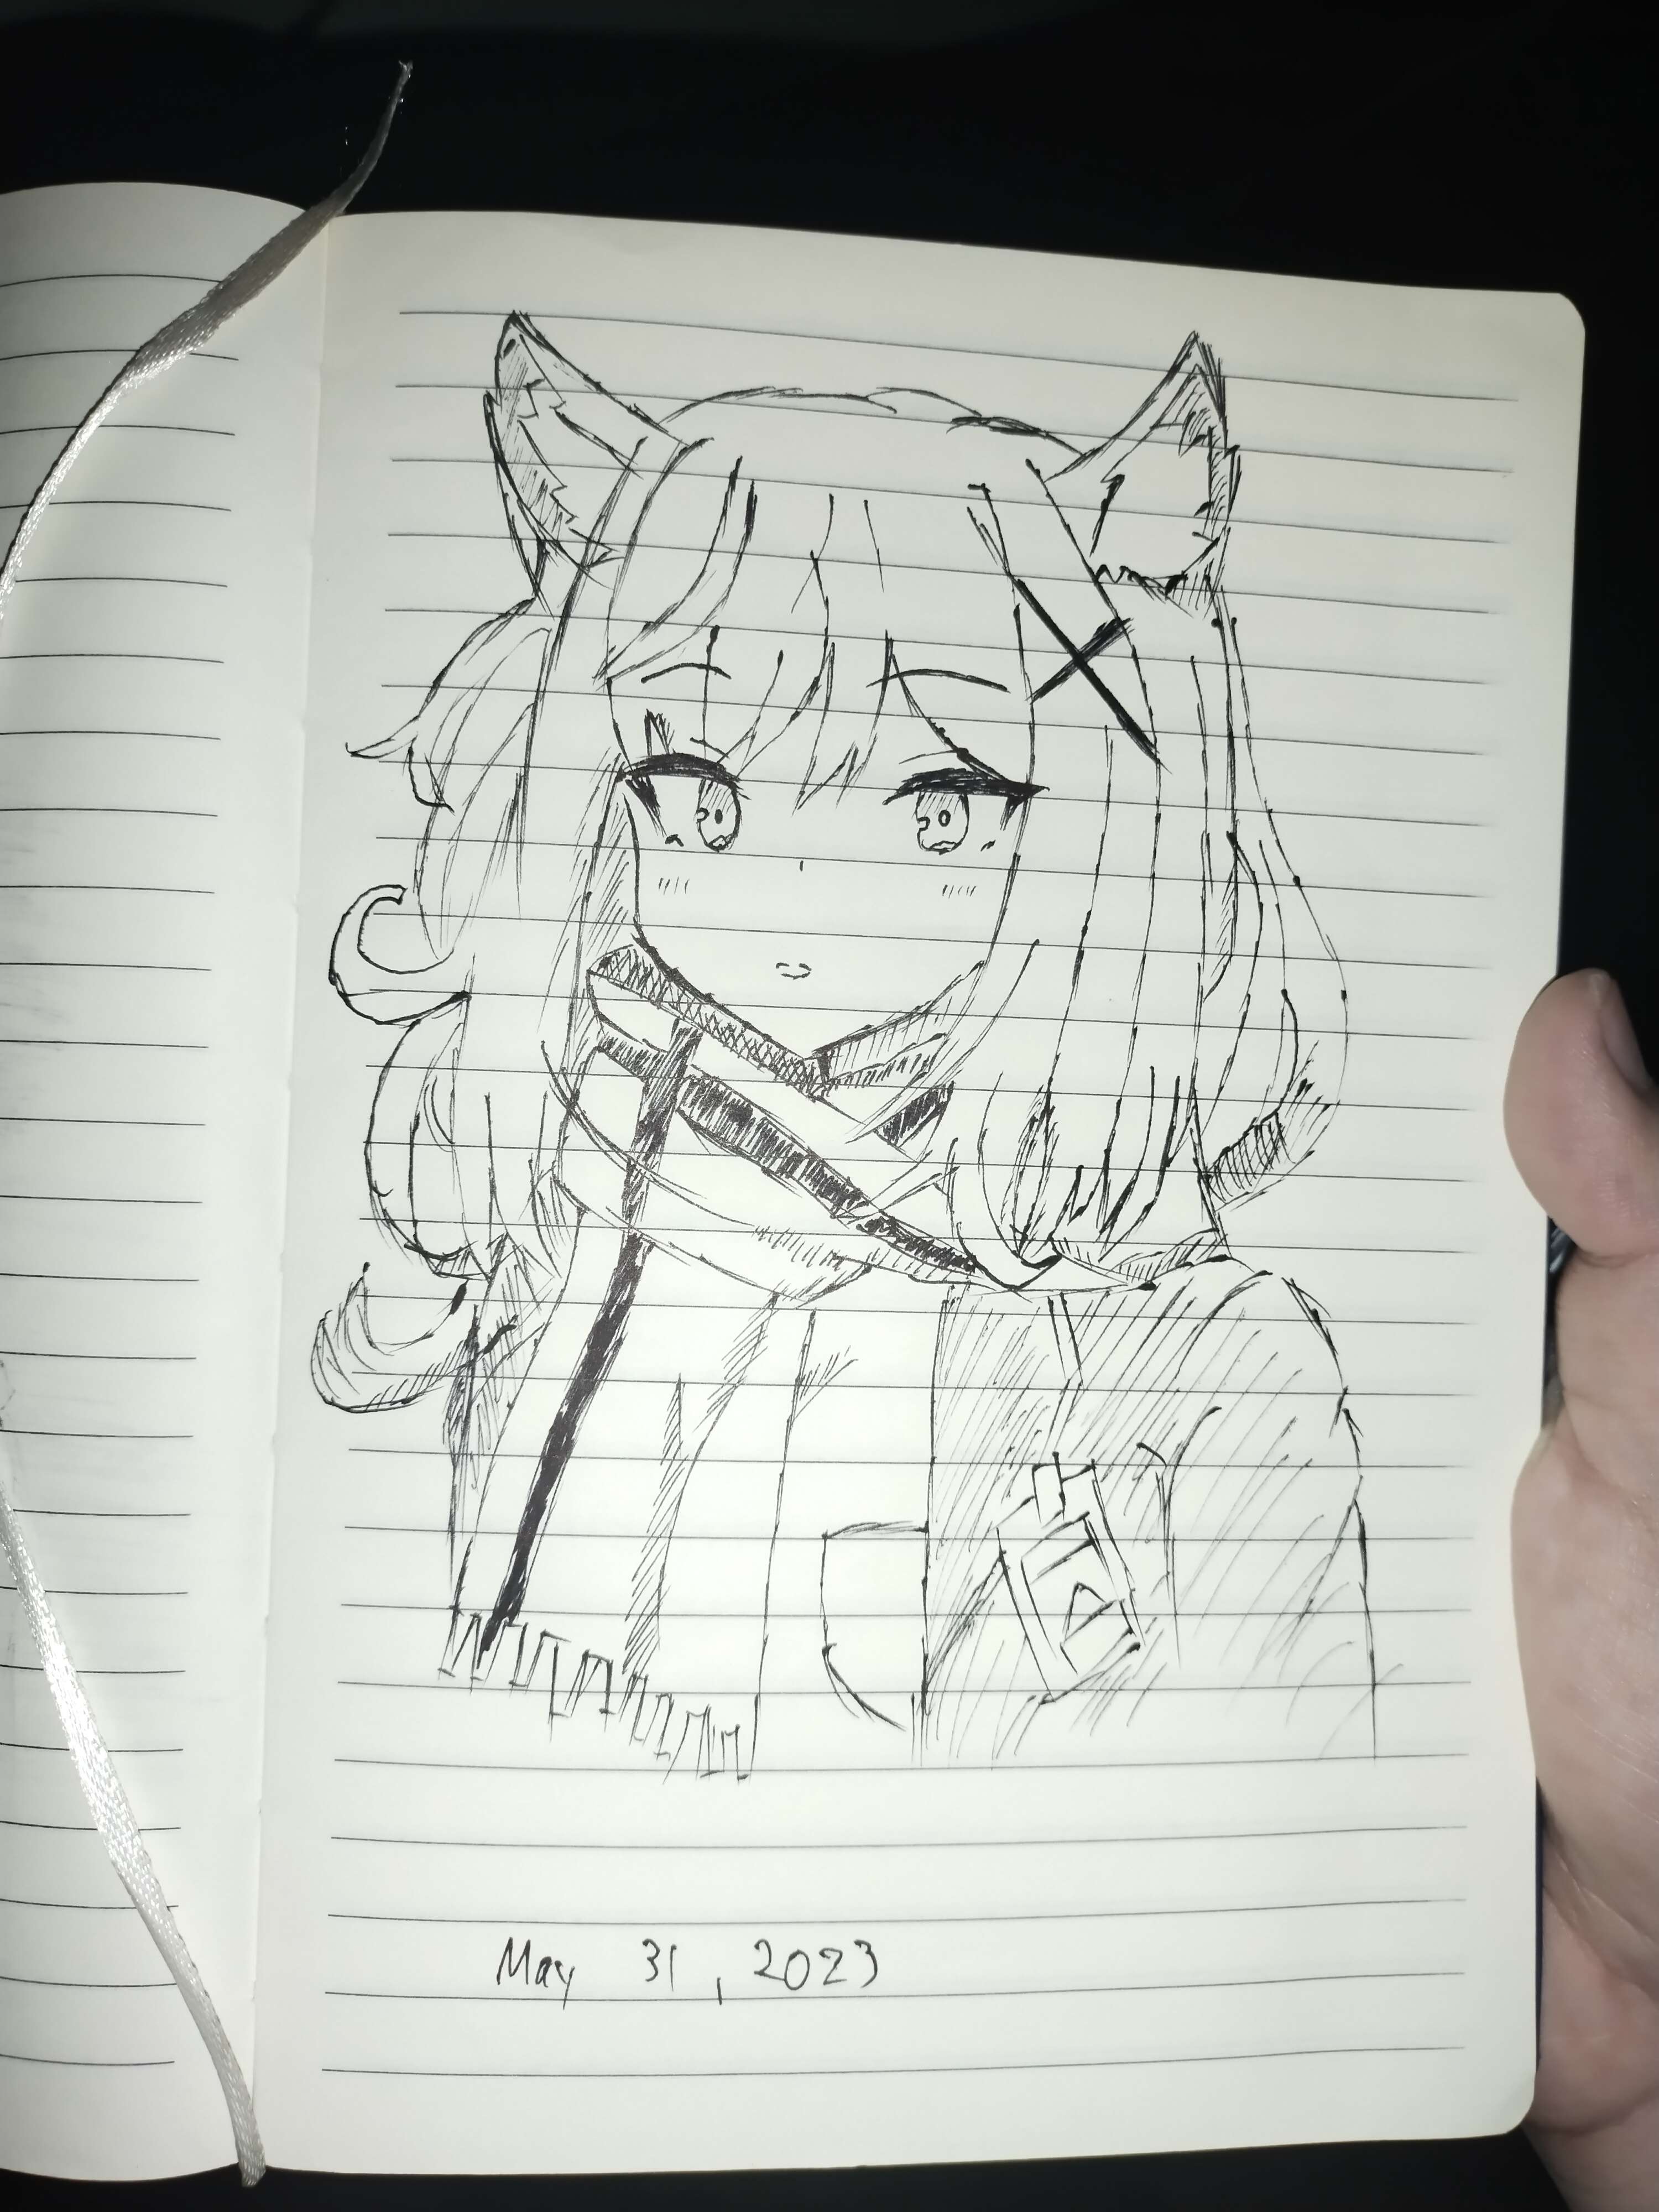 May 31, 2023